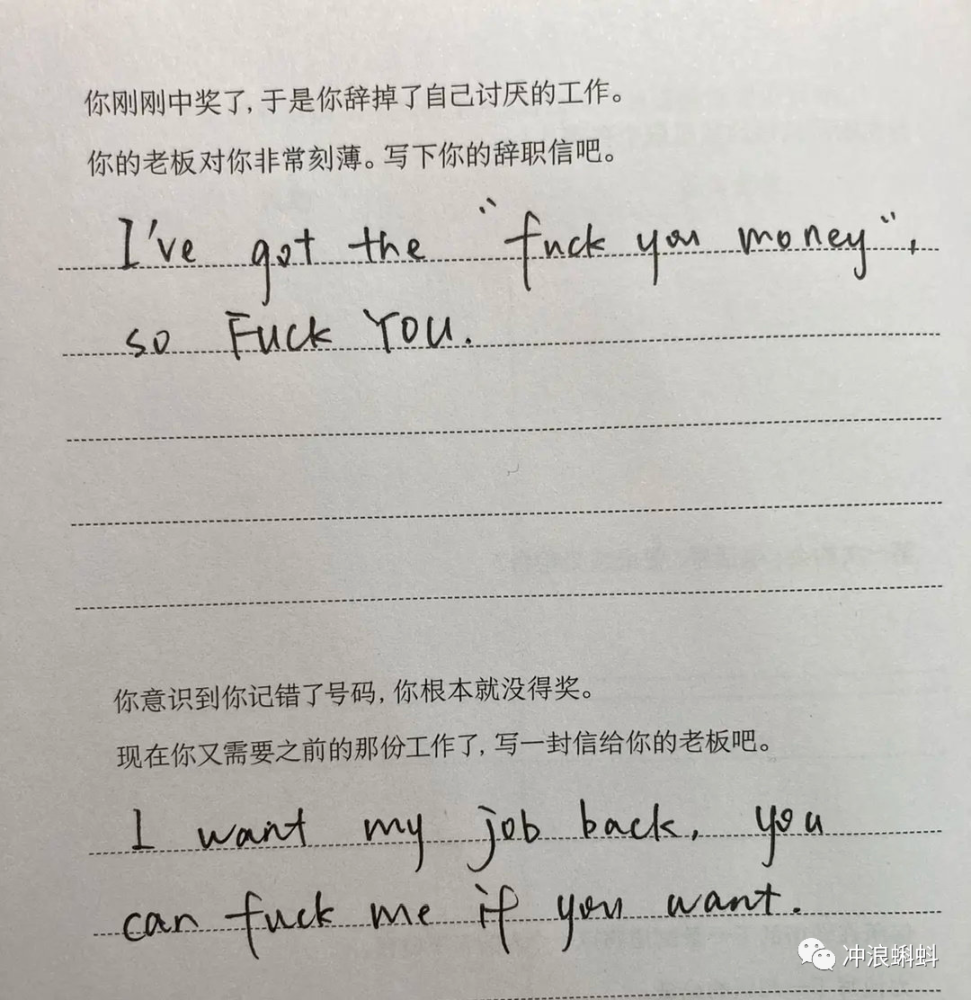 你刚刚中奖了,于是你辞掉了自己讨厌的工作。
你的老板对你非常刻薄。写下你的辞职信吧。
I've got the "fuck you money",
so FUCK YOU.
你意识到你记错了号码,你根本就没得奖。
现在你又需要之前的那份工作了,写一封信给你的老板吧。
I want my job back, you
can fuck me if you want.
冲浪蝌蚪